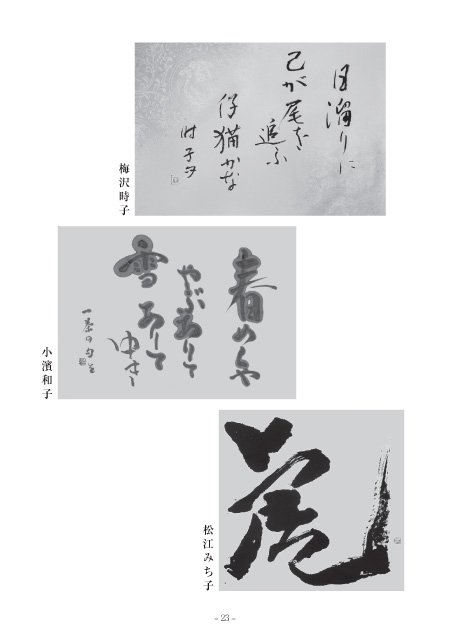 日溜りに
己が尾を
追ふ
仔猫かな
時子
梅沢時子
春めくや
やぶありて
雪ありて
ゆき
一茶の句を
小濱和子
松江みち子
- 23 -